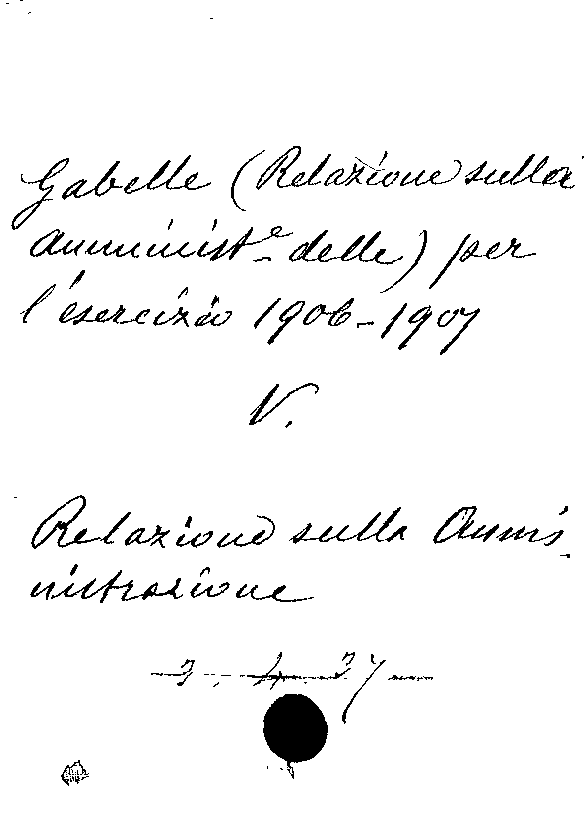 Gabelle (Relazione sulla
amminist.e delle) per
l'esercizio 1906-1907
V.
Relazione sulla Ammi-
nistrazione
3. 4. 37